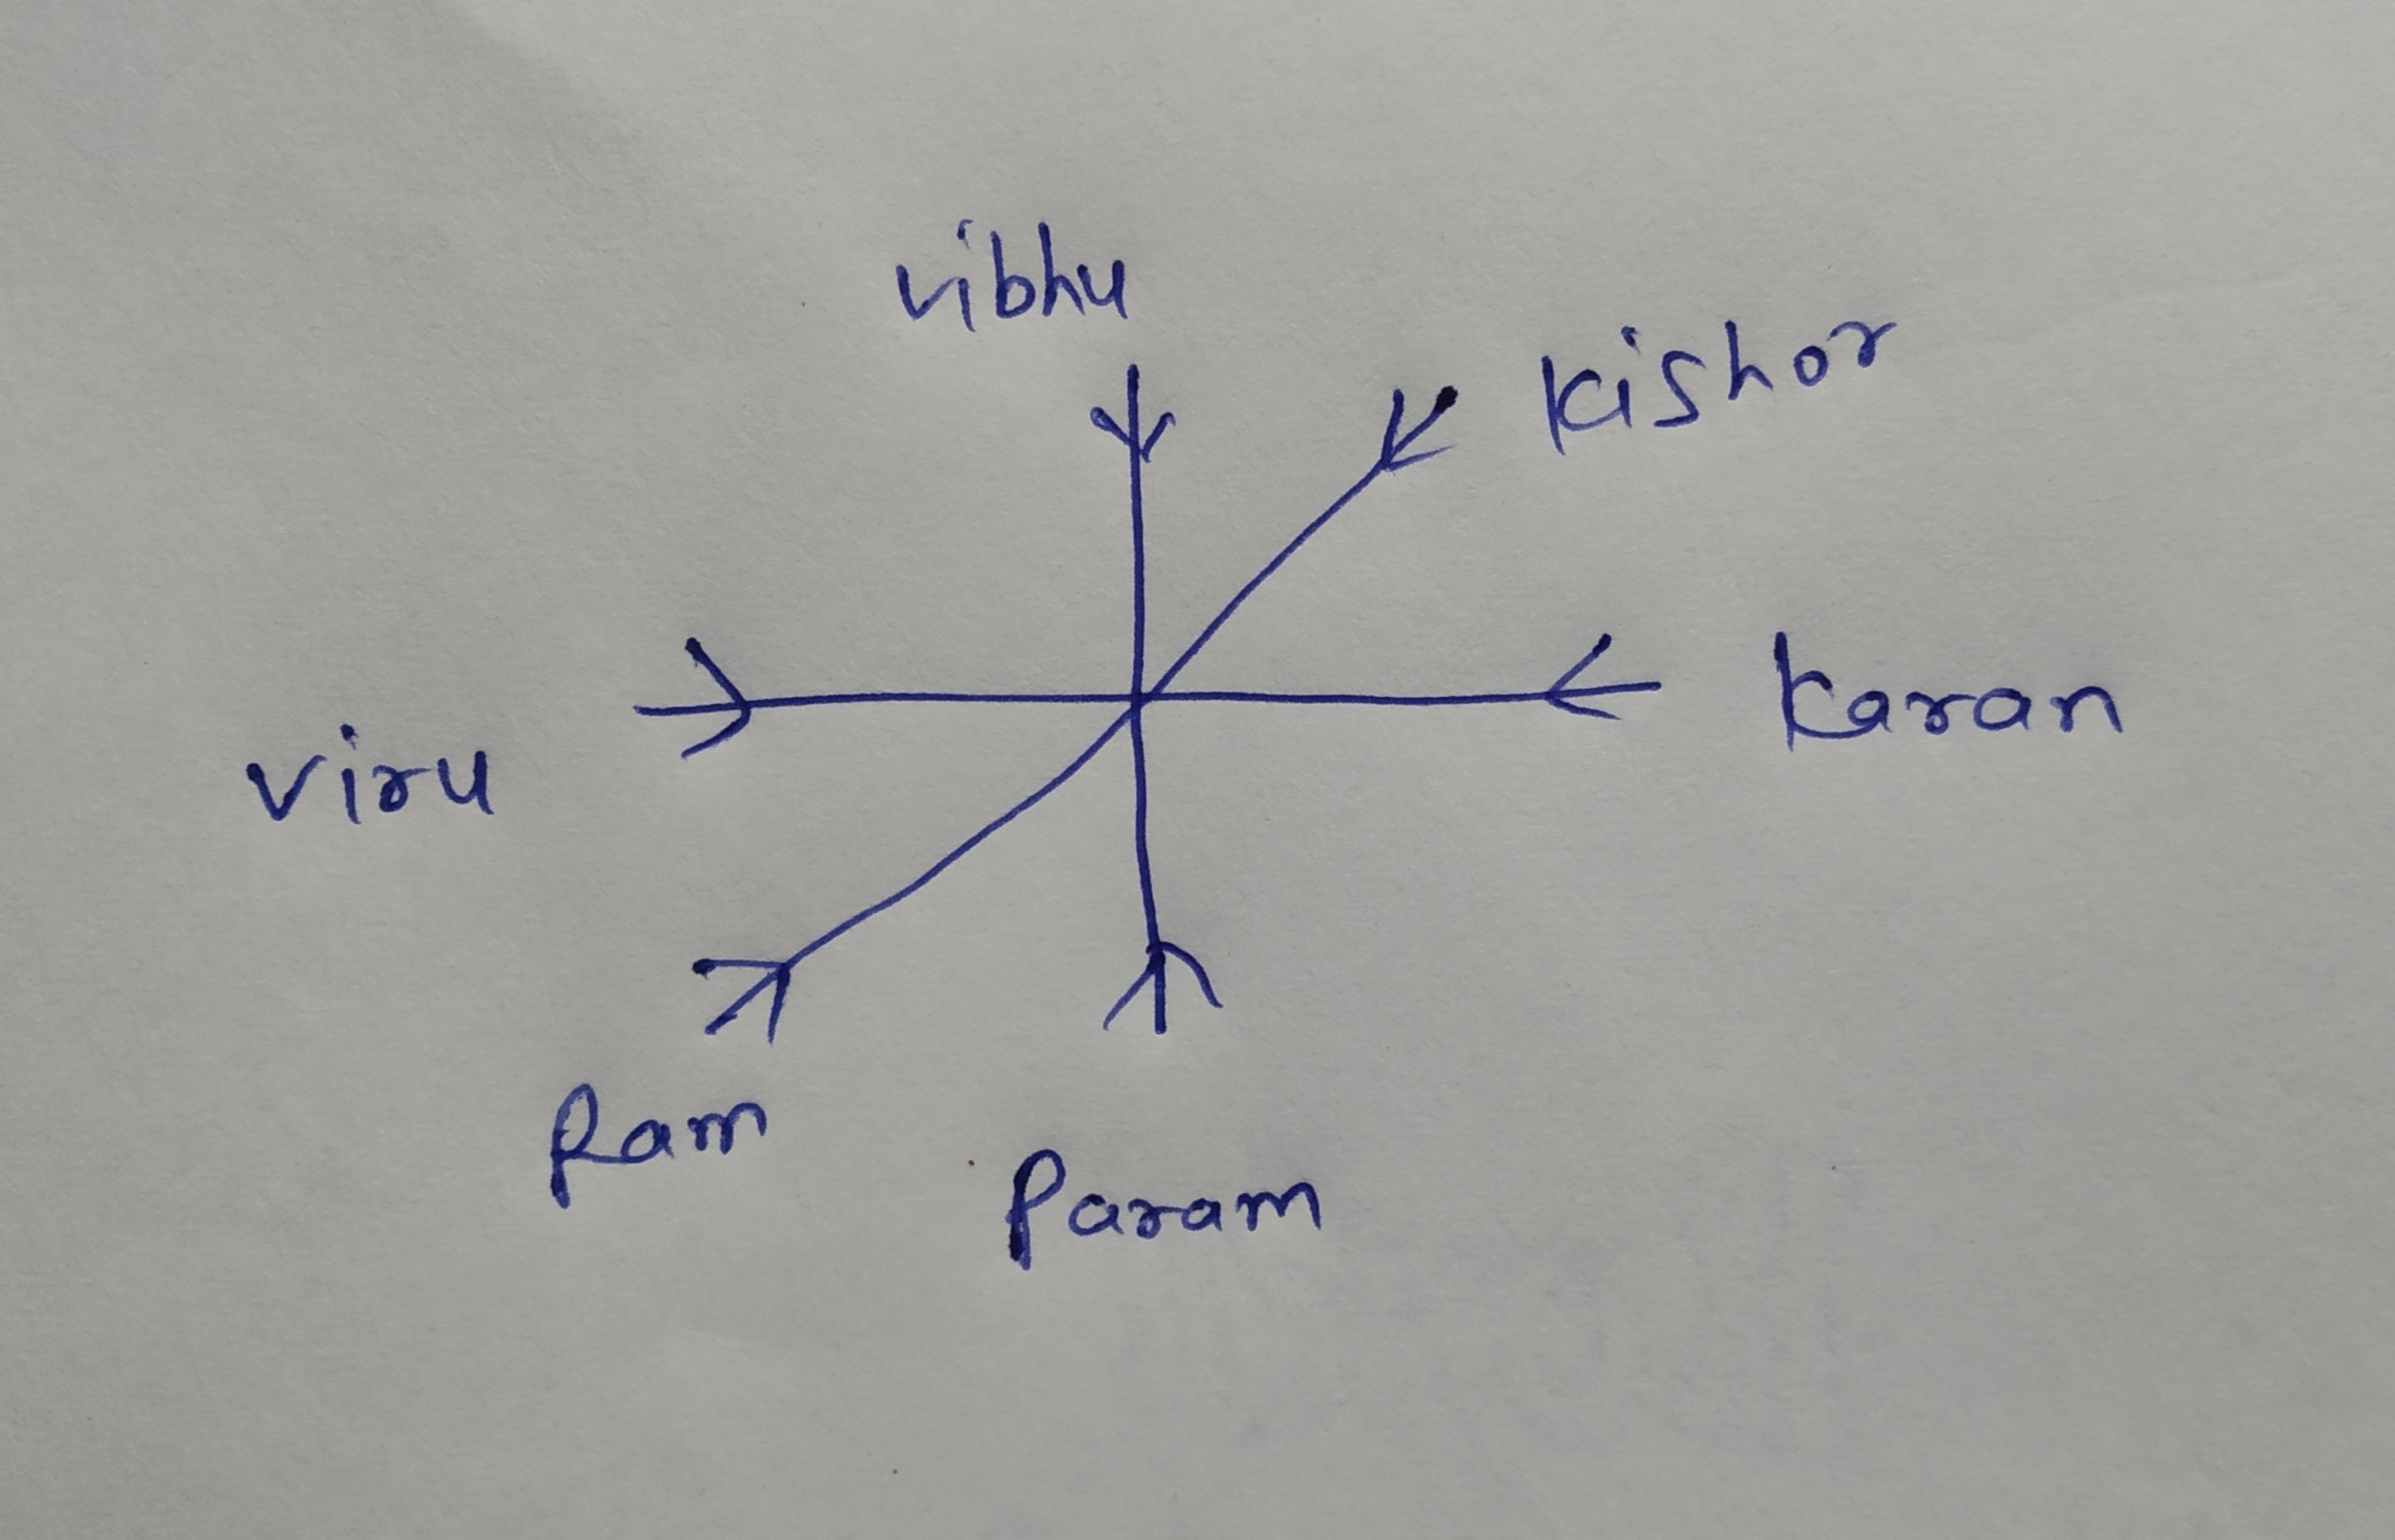 vibhu
Kishor
Karan
viru
Ram
Param